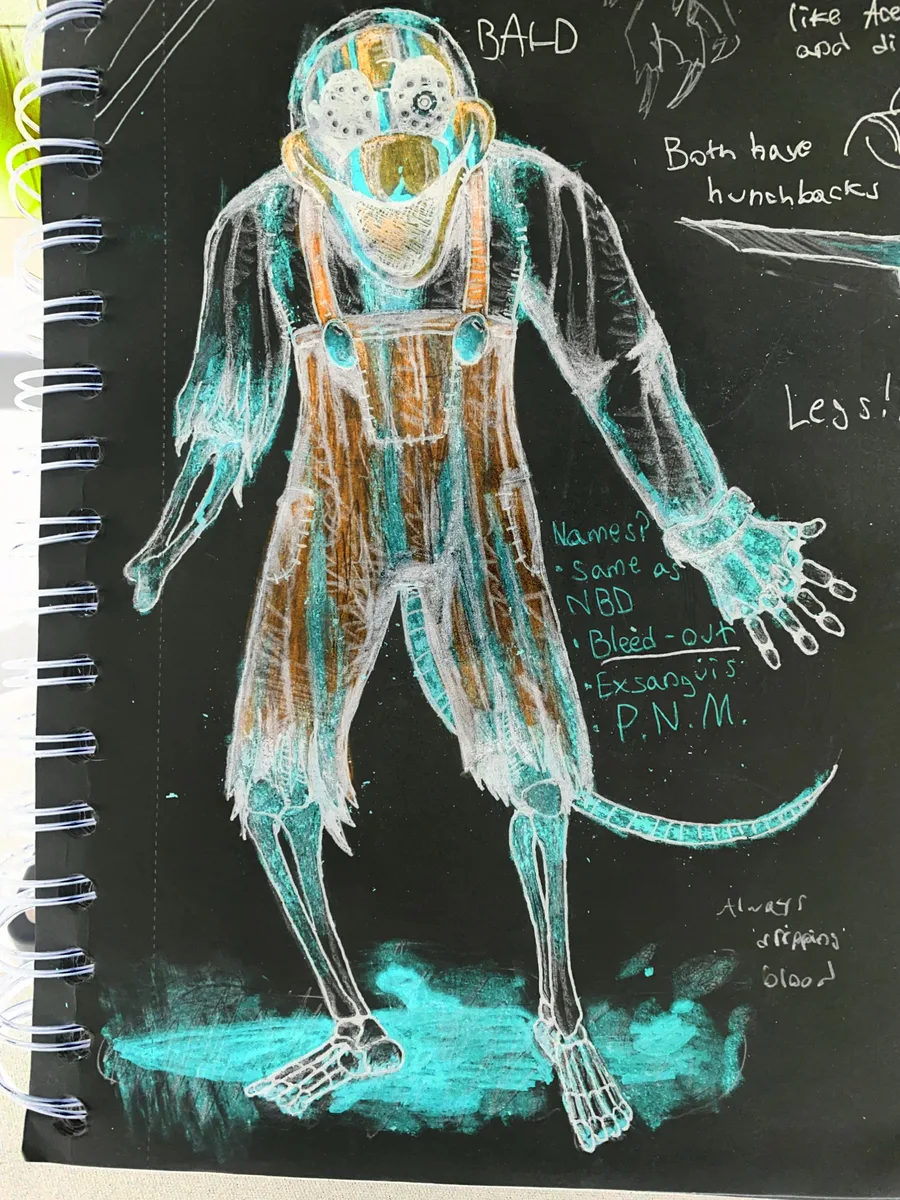 BALD
like Ace
and di
Both have
hunchbacks
Legs!
Names?
• same as
NBD
• Bleed-out
• Exsanguis
• P.N.M.
Always
dripping
blood